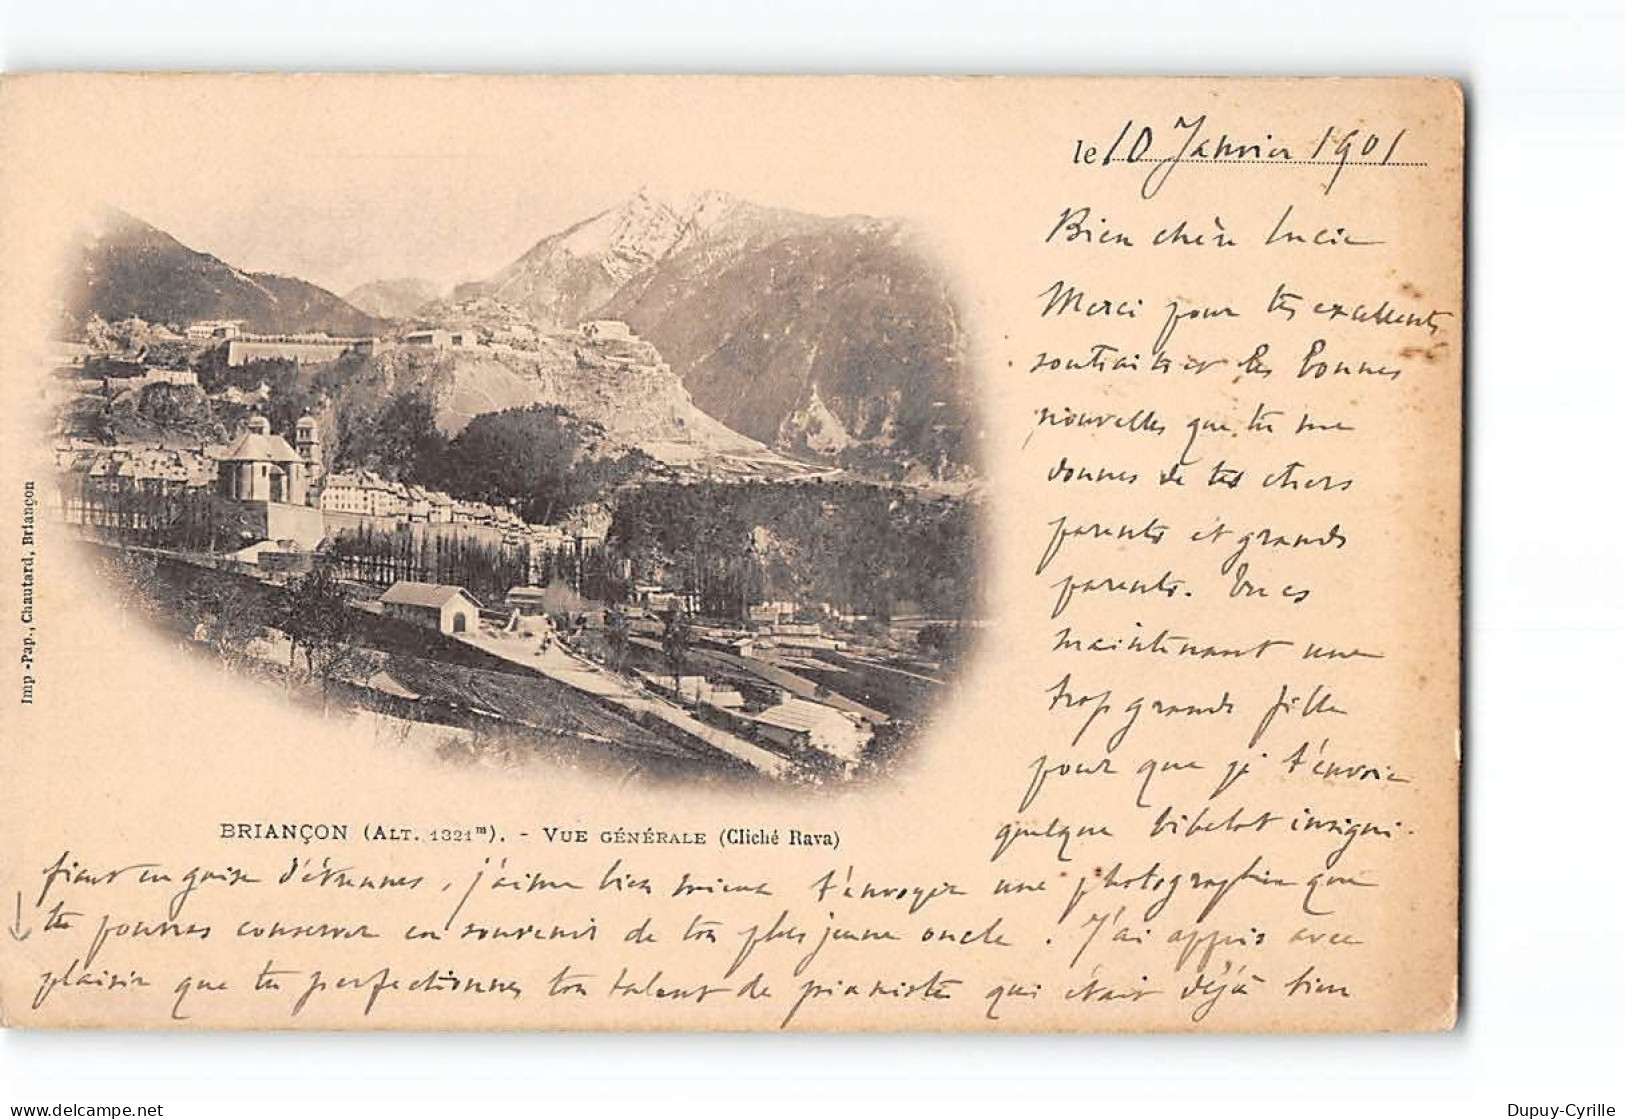 le 10 Janvier 1901
Bien chère Lucie
Merci pour tes excellents
souhaits et les bonnes
nouvelles que tu me
donnes de tes chers
parents et grands
parents. Tu es
maintenant une
trop grande fille
pour que je t'envoie
quelque bibelot insigni-
fiant en guise d'étrennes, j'aime bien mieux t'envoyer une photographie que
tu pourras conserver en souvenir de ton plus jeune oncle. J'ai appris avec
plaisir que tu perfectionnes ton talent de pianiste qui était déjà bien
BRIANÇON (ALT. 1321m). - VUE GÉNÉRALE (Cliché Rava)
Imp.-Pap., Chautard, Briançon
delcampe.net
Dupuy-Cyrille